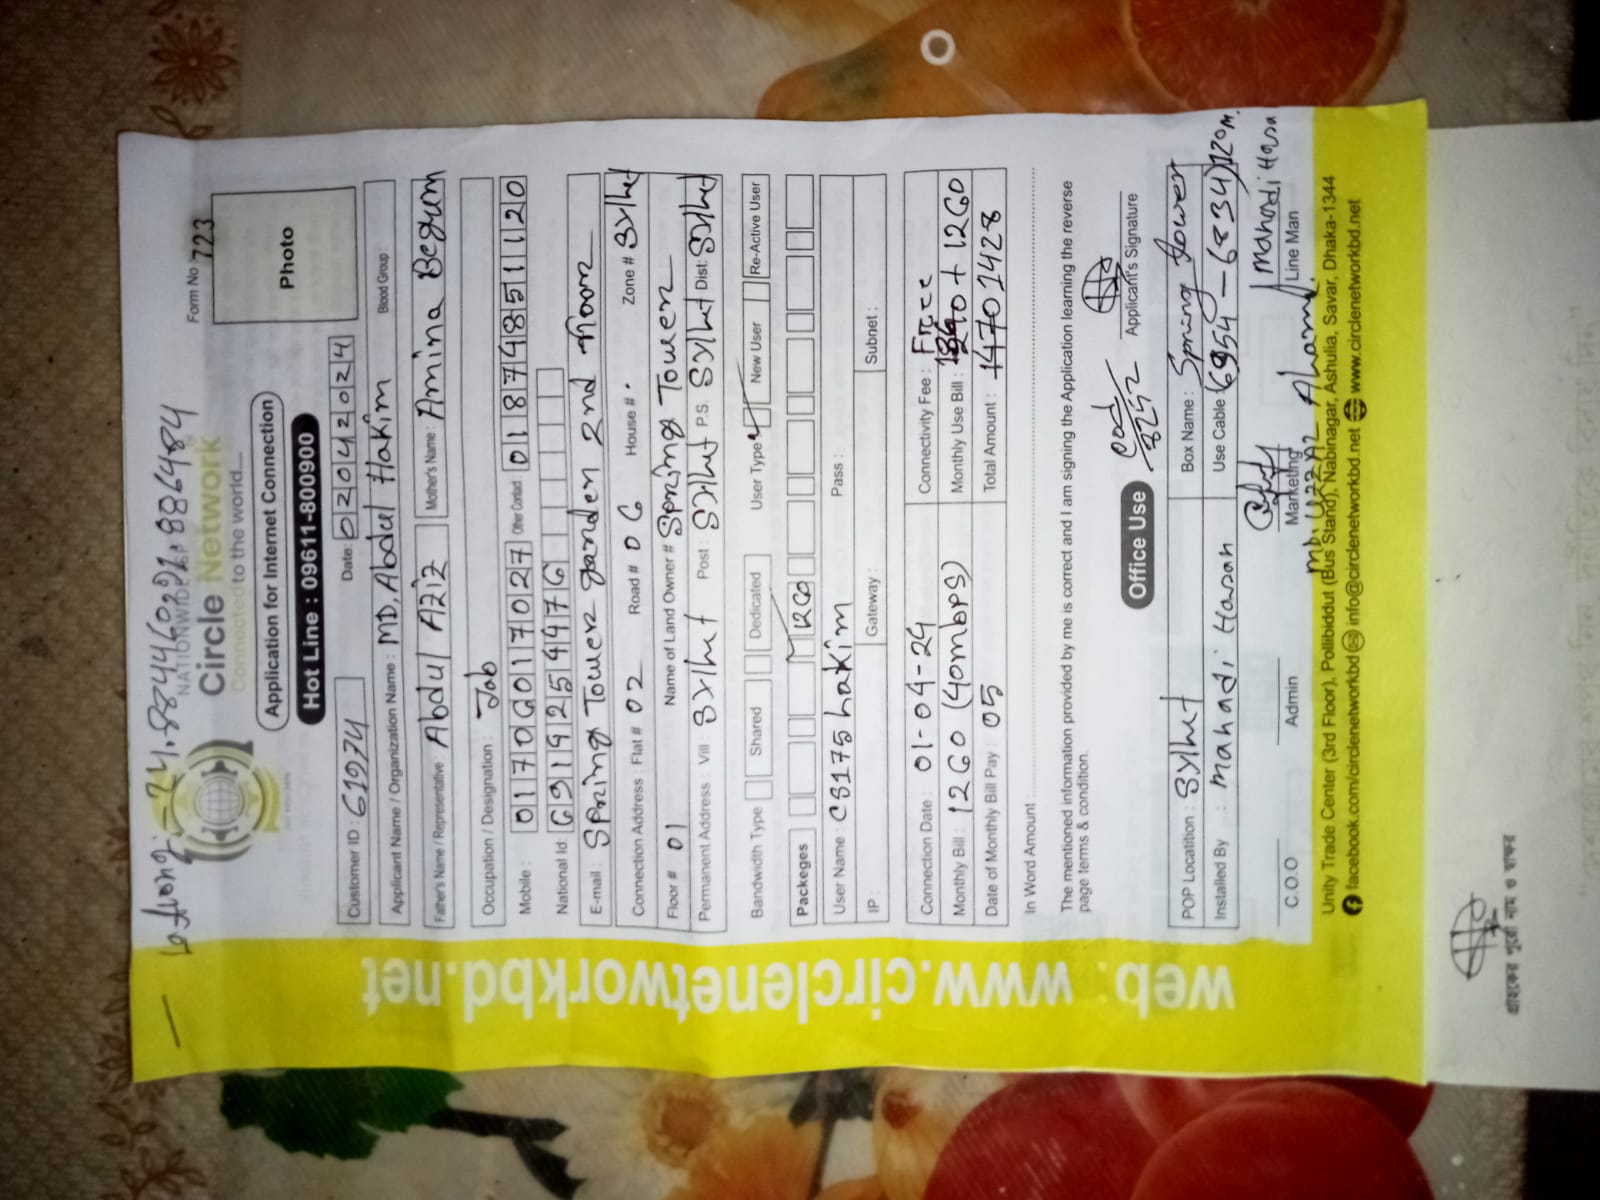 Form No 723
Circle Network
Connected to the world...
Photo
Application for Internet Connection
Hot Line : 09611-800900
Customer ID : 61974 Date: 02042024
Applicant Name / Organization Name : MD. Abdul Hakim Blood Group :
Father's Name / Representative Abdul Aziz Mother's Name : Amina Begum
Occupation / Designation : Job
Mobile : 01706017027 Other Contact 01874851120
National Id: 69194254476
E-mail : Spring Tower garden 2nd floor
Connection Address : Flat # 02 Road # 06 House # . Zone # Sylhet
Floor # 01 Name of Land Owner # Spring Tower
Permanent Address : Vill : Sylhet Post : Sylhet P.S. Sylhet Dist: Sylhet
Bandwidth Type Shared Dedicated User Type New User Re-Active User
Packeges
User Name : CS175hakim Pass :
IP : Gateway : Subnet :
Connection Date : 01-04-24 Connectivity Fee : Free
Monthly Bill : 1260 (40mbps) Monthly Use Bill : + 1260
Date of Monthly Bill Pay : 05 Total Amount : 1428
In Word Amount :
The mentioned information provided by me is correct and I am signing the Application learning the reverse
page terms & condition.
Applicant's Signature
Office Use
POP Locatition : Sylhet Box Name : Spring Tower
Installed By : Mahadi Hasan Use Cable : (6954 - 6834) 120m.
Mahadi Hasa
C.O.O Admin Marketing Line Man
Unity Trade Center (3rd Floor), Pollibiddut (Bus Stand), Nabinagar, Ashulia, Savar, Dhaka-1344
facebook.com/circlenetworkbd info@circlenetworkbd.net www.circlenetworkbd.net
web: www.circlenetworkbd.net
গ্রাহকের পুরো নাম ও স্বাক্ষর